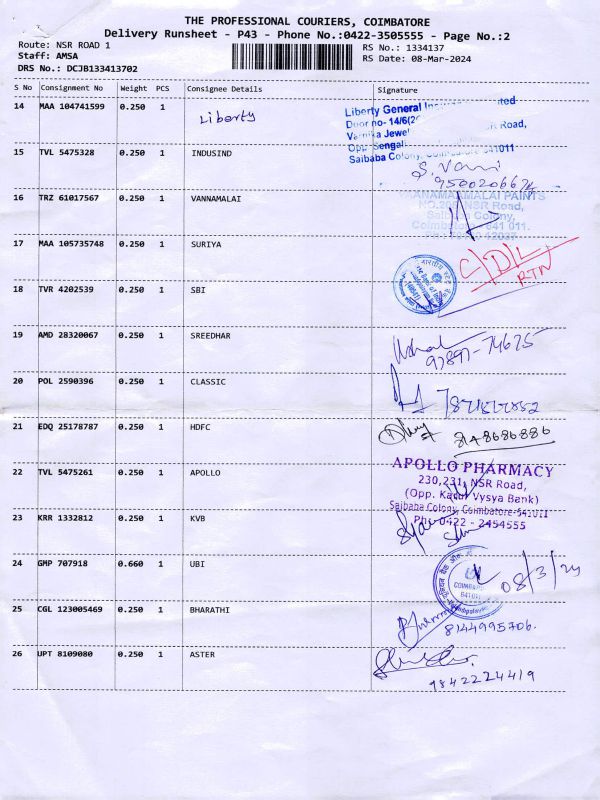 THE PROFESSIONAL COURIERS, COIMBATORE
Delivery Runsheet - P43 - Phone No.:0422-3505555 - Page No.:2
Route: NSR ROAD 1
RS No.: 1334137
Staff: AMSA
RS Date: 08-Mar-2024
DRS No.: DCJB133413702
S No Consignment No Weight PCS Consignee Details Signature
14 MAA 104741599 0.250 1 Liberty
Liberty General
Door no- 14/6
Road,
Opp
Saibaba Colony, 641011
15 TVL 5475328 0.250 1 INDUSIND
16 TRZ 61017567 0.250 1 VANNAMALAI
PAINTS
NSR Road,
Colony,
641 011.
17 MAA 105735748 0.250 1 SURIYA
RTN
18 TVR 4202539 0.250 1 SBI
19 AMD 28320067 0.250 1 SREEDHAR
97897-74675
20 POL 2590396 0.250 1 CLASSIC
21 EDQ 25178787 0.250 1 HDFC
8148686886
22 TVL 5475261 0.250 1 APOLLO
APOLLO PHARMACY
230,231, NSR Road,
(Opp. Karur Vysya Bank)
Saibaba Colony, Coimbatore-641011
Ph: 0422 - 2454555
23 KRR 1332812 0.250 1 KVB
24 GMP 707918 0.660 1 UBI
08/3/24
25 CGL 123005469 0.250 1 BHARATHI
8144995706.
26 UPT 8109080 0.250 1 ASTER
9842224419